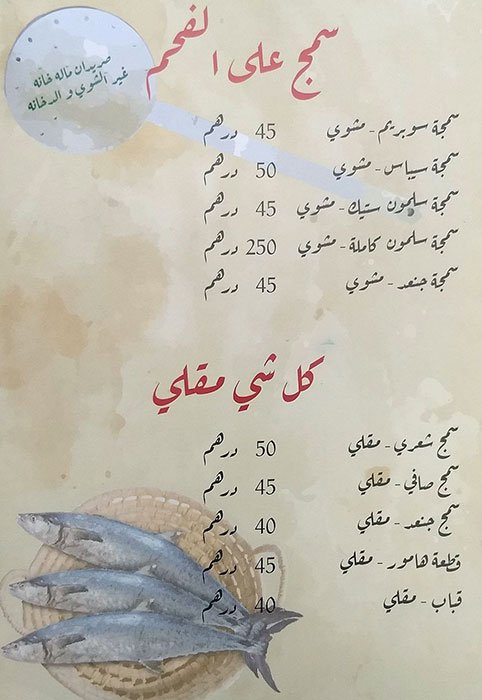 سمج على الفحم
صريدان ماله خانه
غير الشوي و الدخانه
سمجة سوبريم - مشوي 45 درهم
سمجة سيباس - مشوي 50 درهم
سمجة سلمون ستيك - مشوي 45 درهم
سمجة سلمون كاملة - مشوي 250 درهم
سمجة جنعد - مشوي 45 درهم
كل شي مقلي
سمج شعري - مقلي 50 درهم
سمج صافي - مقلي 45 درهم
سمج جنعد - مقلي 40 درهم
قطعة هامور - مقلي 45 درهم
قباب - مقلي 40 درهم